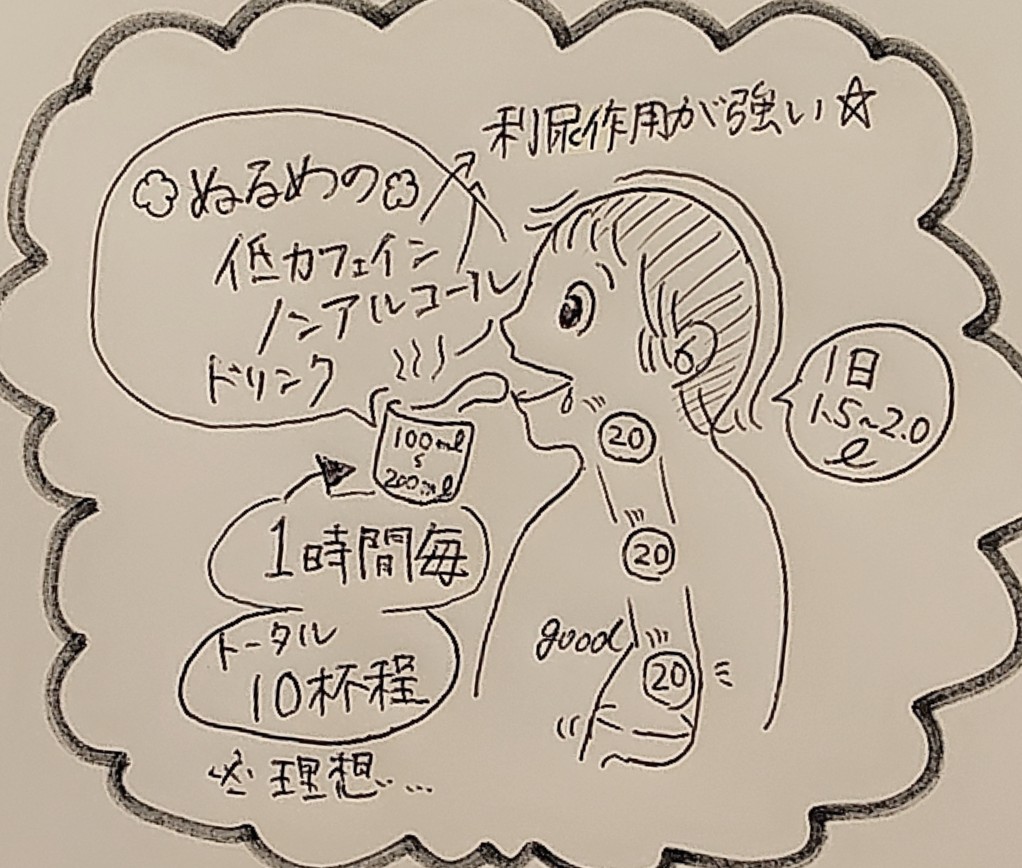 利尿作用が強い☆
ぬるめの
低カフェイン
ノンアルコール
ドリンク
100ml
~
200ml
1時間毎
トータル
10杯程
※理想...
1日
1.5~2.0
l
20
20
good
20